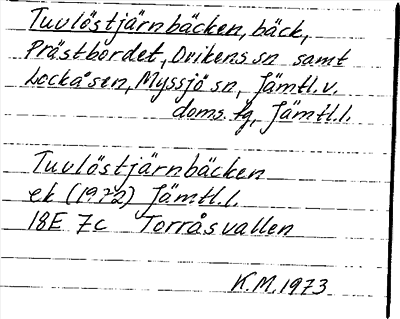 Tuvlöstjärnbäcken, bäck,
Prästbordet, Ovikens sn samt
Lockåsen, Myssjö sn, Jämtl. v.
doms. tg, Jämtl. l.
Tuvlöstjärnbäcken
ek (1972) Jämtl. l.
18E 7c Torråsvallen
K.M. 1973